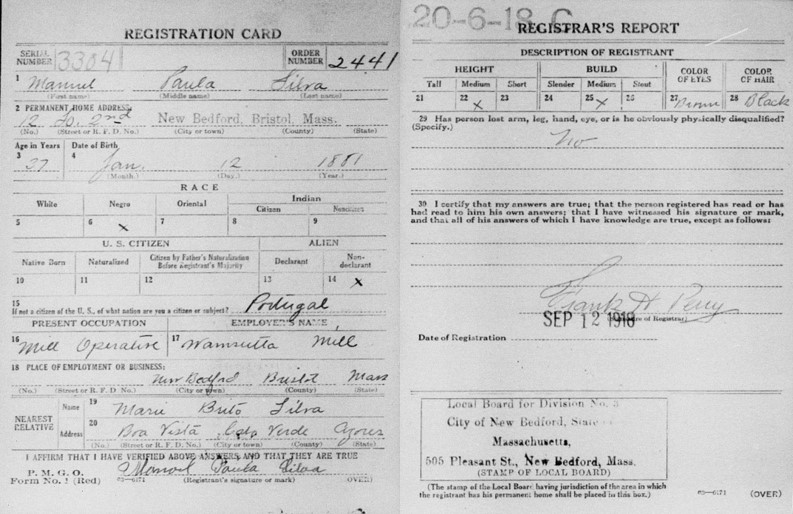 REGISTRATION CARD
SERIAL NUMBER 3304 ORDER NUMBER 2441
1 Manuel Paula Silva
(First name) (Middle name) (Last name)
2 PERMANENT HOME ADDRESS:
12 So. 2nd New Bedford, Bristol, Mass.
(No.) (Street or R. F. D. No.) (City or town) (County) (State)
Age in Years Date of Birth
3 37 4 Jan. 12 1881
(Month.) (Day.) (Year.)
RACE
White Negro Oriental Indian
Citizen Noncitizen
5 6 x 7 8 9
U. S. CITIZEN ALIEN
Native Born Naturalized Citizen by Father's Naturalization Before Registrant's Majority Declarant Non-declarant
10 11 12 13 14 x
15
If not a citizen of the U. S., of what nation are you a citizen or subject? Portugal
PRESENT OCCUPATION EMPLOYER'S NAME
16 Mill Operative 17 Wamsutta Mill
18 PLACE OF EMPLOYMENT OR BUSINESS:
New Bedford Bristol Mass
(No.) (Street or R. F. D. No.) (City or town) (County) (State)
NEAREST RELATIVE Name 19 Marie Brito Silva
Address 20 Boa Vista Verde Azores
(No.) (Street or R. F. D. No.) (City or town) (County) (State)
I AFFIRM THAT I HAVE VERIFIED ABOVE ANSWERS AND THAT THEY ARE TRUE
P. M. G. O.
Form No. 1 (Red) Paula Silva
(Registrant's signature or mark) (OVER)
20-6-18 C
REGISTRAR'S REPORT
DESCRIPTION OF REGISTRANT
HEIGHT BUILD COLOR OF EYES COLOR OF HAIR
Tall Medium Short Slender Medium Stout
21 22 x 23 24 25 x 26 27 Brown 28 Black
29 Has person lost arm, leg, hand, eye, or is he obviously physically disqualified?
(Specify.) No
30 I certify that my answers are true; that the person registered has read or has
had read to him his own answers; that I have witnessed his signature or mark,
and that all of his answers of which I have knowledge are true, except as follows:
Frank H Perry
(Signature of Registrar)
Date of Registration SEP 12 1918
Local Board for Division No. 3
City of New Bedford, State of
Massachusetts,
505 Pleasant St., New Bedford, Mass.
(STAMP OF LOCAL BOARD)
(The stamp of the Local Board having jurisdiction of the area in which
the registrant has his permanent home shall be placed in this box.)
03—6171 (OVER)